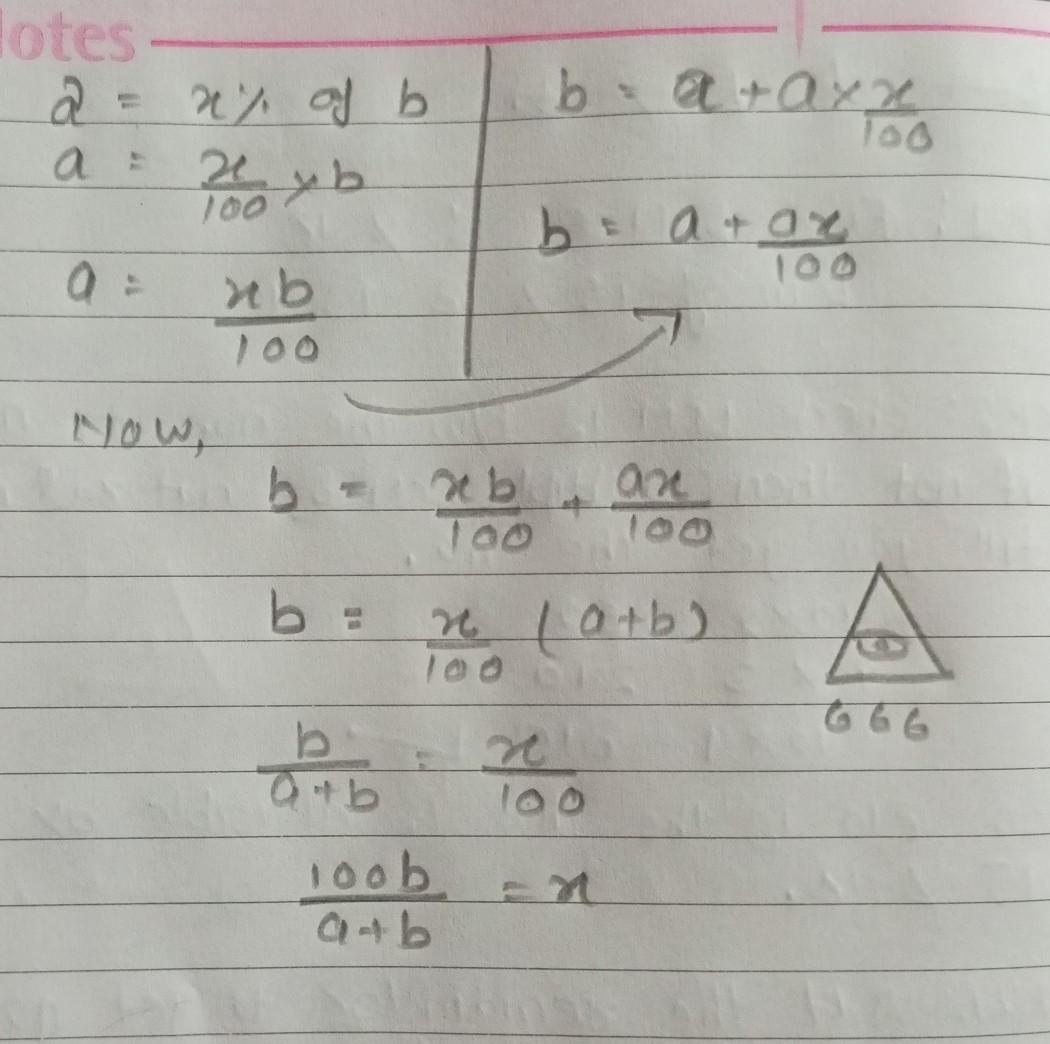 lotes
a = x% of b
a = x/100 × b
a = xb/100
b = a + a × x/100
b = a + ax/100
Now,
b = xb/100 + ax/100
b = x/100 (a+b)
666
b/a+b = x/100
100b/a+b = x